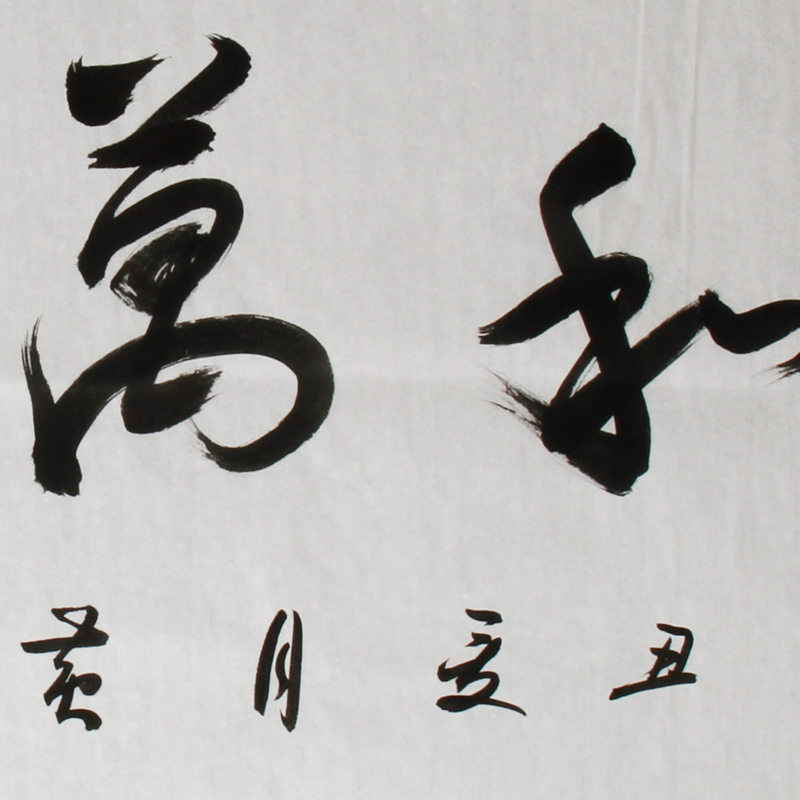 和萬
丑夏月黄